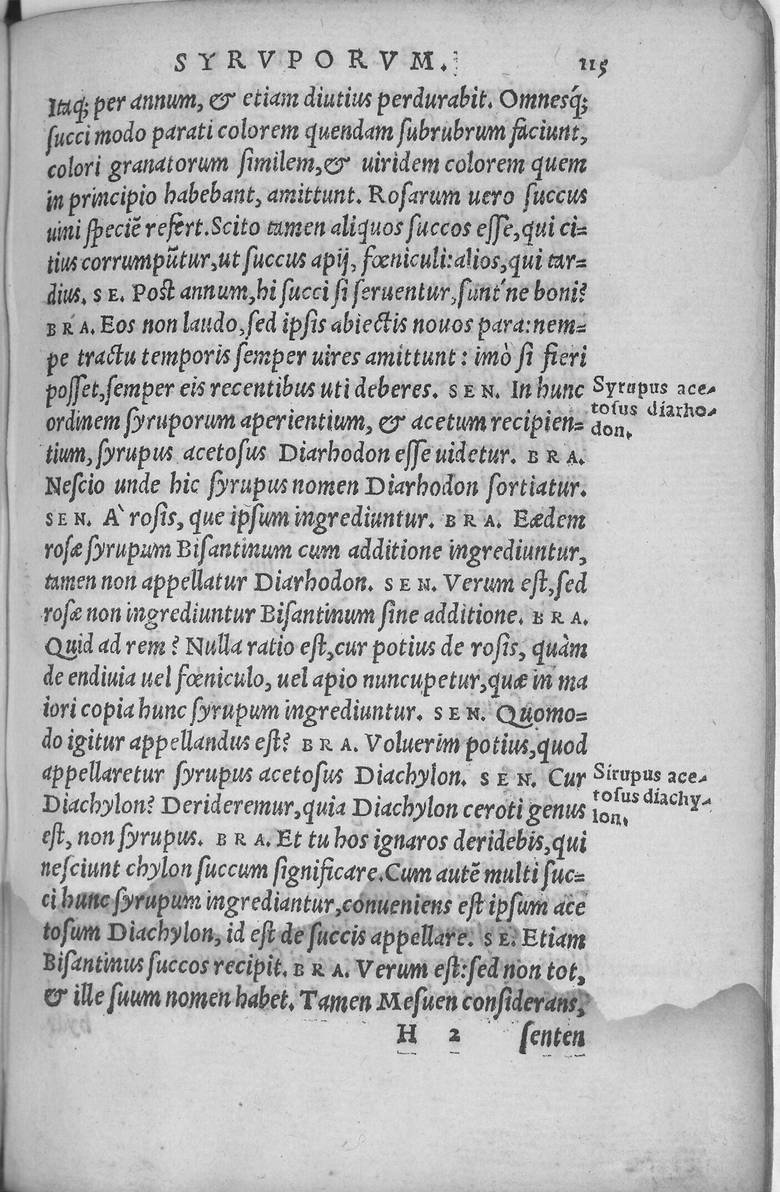 SYRVPORVM. 115
Itaq; per annum, & etiam diutius perdurabit. Omnesq́;
succi modo parati colorem quendam subrubrum faciunt,
colori granatorum similem, & uiridem colorem quem
in principio habebant, amittunt. Rosarum uero succus
uini speciē refert. Scito tamen aliquos succos esse, qui ci=
tius corrumpūtur, ut succus apij, fœniculi: alios, qui tar=
dius. SE. Post annum, hi succi si seruentur, sunt´ne boni?
BRA. Eos non laudo, sed ipsis abiectis nouos para: nem=
pe tractu temporis semper uires amittunt: imò si fieri
posset, semper eis recentibus uti deberes. SEN. In hunc
ordinem syruporum aperientium, & acetum recipien=
tium, syrupus acetosus Diarhodon esse uidetur. BRA.
Nescio unde hic syrupus nomen Diarhodon sortiatur.
SEN. A` rosis, que ipsum ingrediuntur. BRA. Eædem
rosæ syrupum Bisantinum cum additione ingrediuntur,
tamen non appellatur Diarhodon. SEN. Verum est, sed
rosæ non ingrediuntur Bisantinum sine additione. BRA.
Quid ad rem? Nulla ratio est, cur potius de rosis, quàm
de endiuia uel fœniculo, uel apio nuncupetur, quæ in ma
iori copia hunc syrupum ingrediuntur. SEN. Quomo=
do igitur appellandus est? BRA. Voluerim potius, quod
appellaretur syrupus acetosus Diachylon. SEN. Cur
Diachylon? Derideremur, quia Diachylon ceroti genus
est, non syrupus. BRA. Et tu hos ignaros deridebis, qui
nesciunt chylon succum significare. Cum autē multi suc=
ci hunc syrupum ingrediantur, conueniens est ipsum ace
tosum Diachylon, id est de succis appellare. SE. Etiam
Bisantinus succos recipit. BRA. Verum est: sed non tot,
& ille suum nomen habet. Tamen Mesuen considerans,
H 2 senten
Syrupus ace-
tosus diarho-
don.
Sirupus ace-
tosus diachy-
lon.